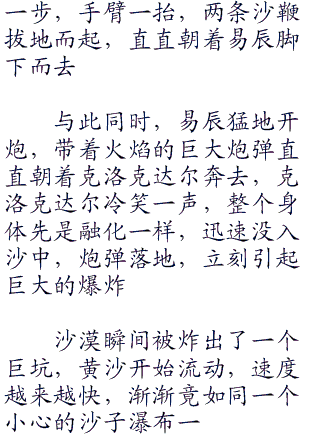 一步，手臂一抬，两条沙鞭
拔地而起，直直朝着易辰脚
下而去
与此同时，易辰猛地开
炮，带着火焰的巨大炮弹直
直朝着克洛克达尔奔去，克
洛克达尔冷笑一声，整个身
体先是融化一样，迅速没入
沙中，炮弹落地，立刻引起
巨大的爆炸
沙漠瞬间被炸出了一个
巨坑，黄沙开始流动，速度
越来越快，渐渐竟如同一个
小心的沙子瀑布一